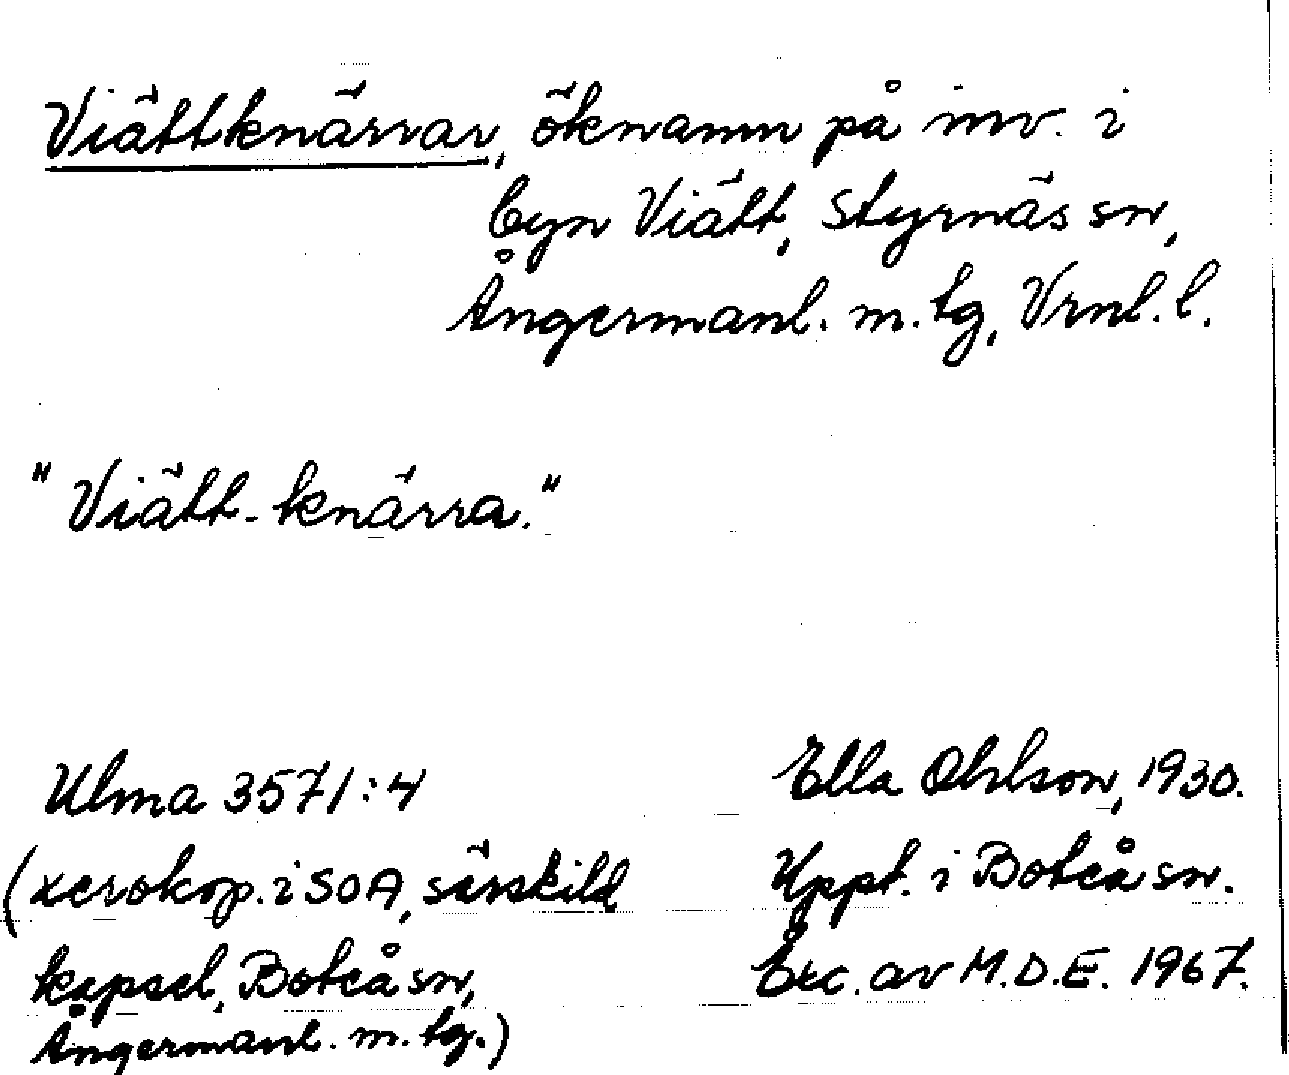 Viättknärrar, öknamn på inv. i
byn Viätt, Styrnäs sn,
Ångermanl. m. tg, Vrnl. l.
"Viätt-knärra."
Ulma 3571:4
(xerokop. i SOA, särskild
kapsel, Boteå sn,
Ångermanl. m. tg.)
Ella Ohlson, 1930.
Uppt. i Boteå sn.
Exc. av M.D.E. 1967.